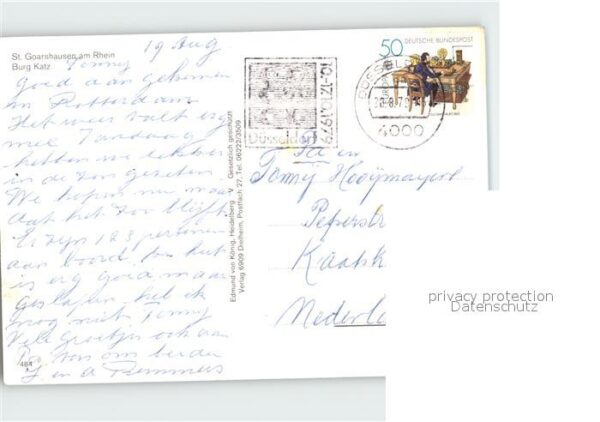 St. Goarshausen am Rhein
Burg Katz
19 Aug
Tonny
Goed aan gekomen
in Rotterdam
Het weer valt erg
mee Vandaag
hebben we lekker
in de zon gezeten
We hopen nu maar
dat het zoo blijft
Er zijn 123 personen
aan boord, het
is erg goed, maar
geslapen heb ik
nog niet Tonny
Vele groetjes ook aan
van ons beiden
484
Edmund von König, Heidelberg V Gesetzlich geschützt
Verlag 6909 Dielheim, Postfach 27, Tel. 06222/3509
10.-12.10.1979
Düsseldorf
50 DEUTSCHE BUNDESPOST
DÜSSELD
4000
Tonny
Peperstr
Kaatsh
Nederla
privacy protection
Datenschutz